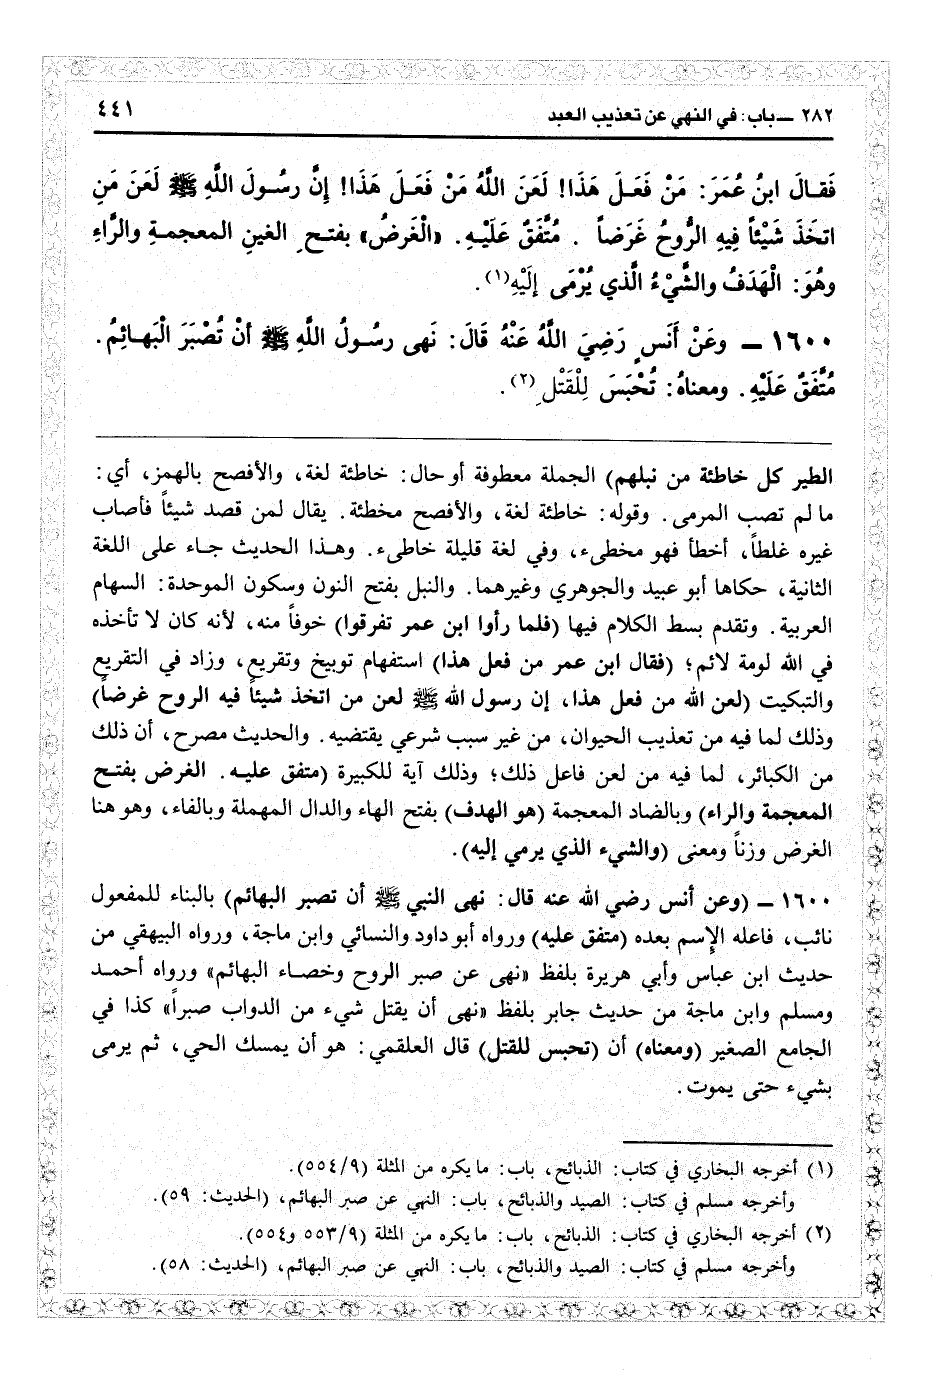 ٢٨٢ ــ باب: في النهي عن تعذيب العبد
٤٤١
فَقالَ ابنُ عُمَرَ: مَنْ فَعَـلَ هَذَا! لَعَنَ اللَّهُ مَنْ فَعَـلَ هَذَا! إنَّ رسُولَ اللَّهِ ﷺ لَعَنَ مَنِ
اتخَذَ شَيْئاً فيهِ الرُّوحُ غَرَضاً . مُتَّفَقٌ عَلَيْهِ. «الْغَرضُ» بفتحِ الغينِ المعجمةِ والرَّاءِ
وهُوَ: الْهَدَفُ والشَّيْءُ الَّذي يُرْمَى إلَيْهِ(١).
١٦٠٠ ــ وعَنْ أنَسٍ رَضِيَ اللَّهُ عَنْهُ قَالَ: نَهى رسُولُ اللَّهِ ﷺ أنْ تُصْبَرَ الْبَهائِمُ.
مُتَّفَقٌ عَلَيْهِ. ومعناهُ: تُحْبَسَ لِلْقَتْلِ(٢).
الطير كل خاطئة من نبلهم) الجملة معطوفة أو حال: خاطئة لغة، والأفصح بالهمز، أي:
ما لم تصب المرمى. وقوله: خاطئة لغة، والأفصح مخطئة. يقال لمن قصد شيئاً فأصاب
غيره غلطاً، أخطأ فهو مخطىء، وفي لغة قليلة خاطىء. وهذا الحديث جاء على اللغة
الثانية، حكاها أبو عبيد والجوهري وغيرهما. والنبل بفتح النون وسكون الموحدة: السهام
العربية. وتقدم بسط الكلام فيها (فلما رأوا ابن عمر تفرقوا) خوفاً منه، لأنه كان لا تأخذه
في الله لومة لائم؛ (فقال ابن عمر من فعل هذا) استفهام توبيخ وتقريع، وزاد في التقريع
والتبكيت (لعن الله من فعل هذا، إن رسول الله ﷺ لعن من اتخذ شيئاً فيه الروح غرضاً)
وذلك لما فيه من تعذيب الحيوان، من غير سبب شرعي يقتضيه. والحديث مصرح، أن ذلك
من الكبائر، لما فيه من لعن فاعل ذلك؛ وذلك آية للكبيرة (متفق عليه. الغرض بفتح
المعجمة والراء) وبالضاد المعجمة (هو الهدف) بفتح الهاء والدال المهملة وبالفاء، وهو هنا
الغرض وزناً ومعنى (والشيء الذي يرمي إليه).
١٦٠٠ ــ (وعن أنس رضي الله عنه قال: نهى النبي ﷺ أن تصبر البهائم) بالبناء للمفعول
نائب، فاعله الإسم بعده (متفق عليه) ورواه أبو داود والنسائي وابن ماجة، ورواه البيهقي من
حديث ابن عباس وأبي هريرة بلفظ «نهى عن صبر الروح وخصاء البهائم» ورواه أحمد
ومسلم وابن ماجة من حديث جابر بلفظ «نهى أن يقتل شيء من الدواب صبراً» كذا في
الجامع الصغير (ومعناه) أن (تحبس للقتل) قال العلقمي: هو أن يمسك الحي، ثم يرمى
بشيء حتى يموت.
(١) أخرجه البخاري في كتاب: الذبائح، باب: ما يكره من المثلة (٥٥٤/٩).
وأخرجه مسلم في كتاب: الصيد والذبائح، باب: النهي عن صبر البهائم، (الحديث: ٥٩).
(٢) أخرجه البخاري في كتاب: الذبائح، باب: ما يكره من المثلة (٥٥٣/٩ و٥٥٤).
وأخرجه مسلم في كتاب: الصيد والذبائح، باب: النهي عن صبر البهائم، (الحديث: ٥٨).